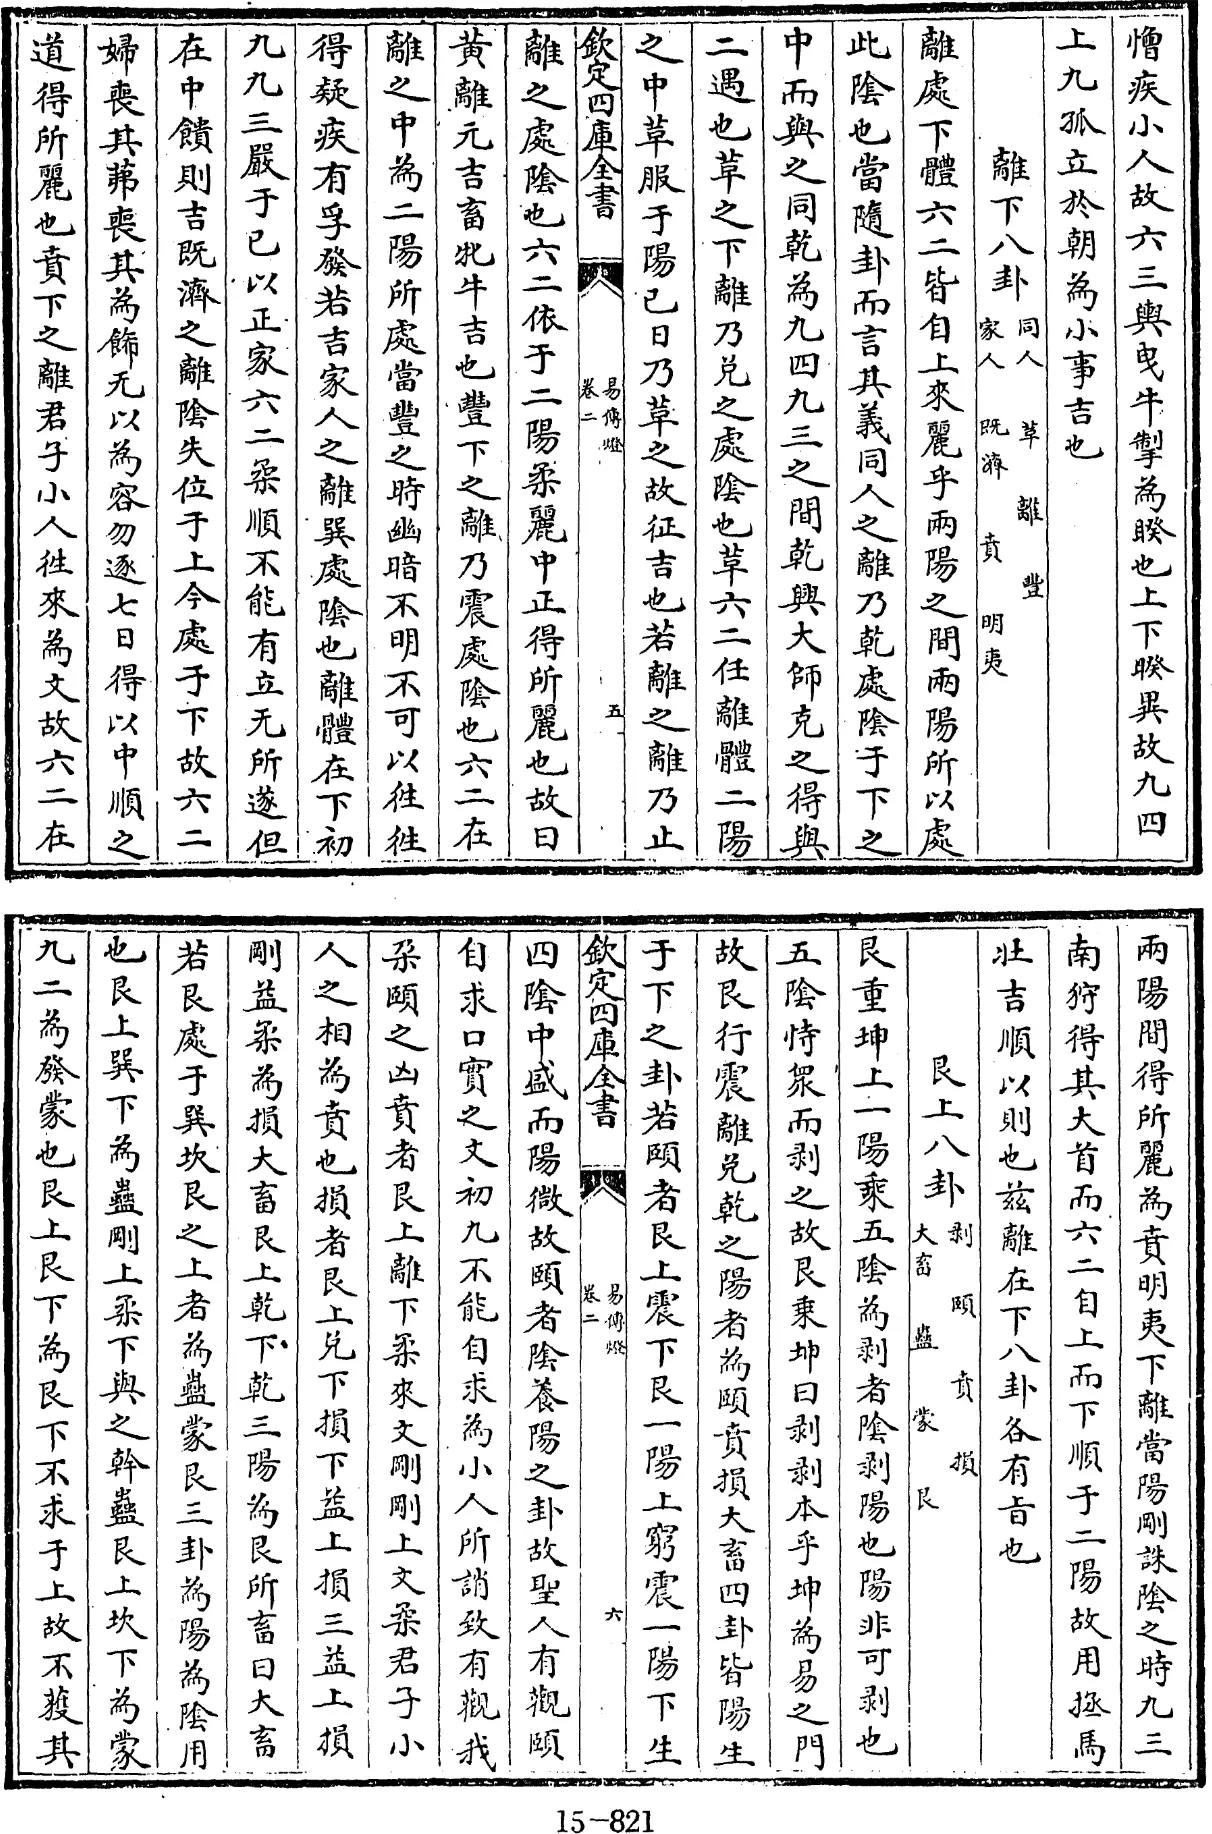 憎疾小人故六三輿曳牛掣為睽也上下睽異故九四
上九孤立於朝為小事吉也
離下八卦 同人 革 離 豐 家人 既濟 賁 明夷
離處下體六二皆自上來麗乎兩陽之間兩陽所以處
此陰也當隨卦而言其義同人之離乃乾處陰于下之
中而與之同乾為九四九三之間乾興大師克之得與
二遇也草之下離乃兌之處陰也草六二任離體二陽
之中草服于陽已日乃草之故征吉也若離之離乃止
欽定四庫全書 易傳燈 卷二 五
離之處陰也六二依于二陽柔麗中正得所麗也故曰
黃離元吉畜牝牛吉也豐下之離乃震處陰也六二在
離之中為二陽所處當豐之時幽暗不明不可以徃徃
得疑疾有孚發若吉家人之離巽處陰也離體在下初
九九三嚴于已以正家六二柔順不能有立无所遂但
在中饋則吉既濟之離陰失位于上今處于下故六二
婦喪其茀喪其為飾无以為容勿逐七日得以中順之
道得所麗也賁下之離君子小人徃來為文故六二在
兩陽間得所麗為賁明夷下離當陽剛誅陰之時九三
南狩得其大首而六二自上而下順于二陽故用拯馬
壯吉順以則也茲離在下八卦各有旨也
艮上八卦 剥 頤 賁 損 大畜 蠱 蒙 艮
艮重坤上一陽乘五陰為剥者陰剥陽也陽非可剥也
五陰恃衆而剥之故艮乘坤曰剥剥本乎坤為易之門
故艮行震離兌乾之陽者為頤賁損大畜四卦皆陽生
于下之卦若頤者艮上震下艮一陽上窮震一陽下生
欽定四庫全書 易傳燈 卷二 六
四陰中盛而陽微故頤者陰養陽之卦故聖人有觀頤
自求口實之文初九不能自求為小人所誚致有觀我
朶頤之凶賁者艮上離下柔來文剛剛上文柔君子小
人之相為賁也損者艮上兌下損下益上損三益上損
剛益柔為損大畜艮上乾下乾三陽為艮所畜曰大畜
若艮處于巽坎艮之上者為蠱蒙艮三卦為陽為陰用
也艮上巽下為蠱剛上柔下與之幹蠱艮上坎下為蒙
九二為發蒙也艮上艮下為艮下不求于上故不獲其
15-821